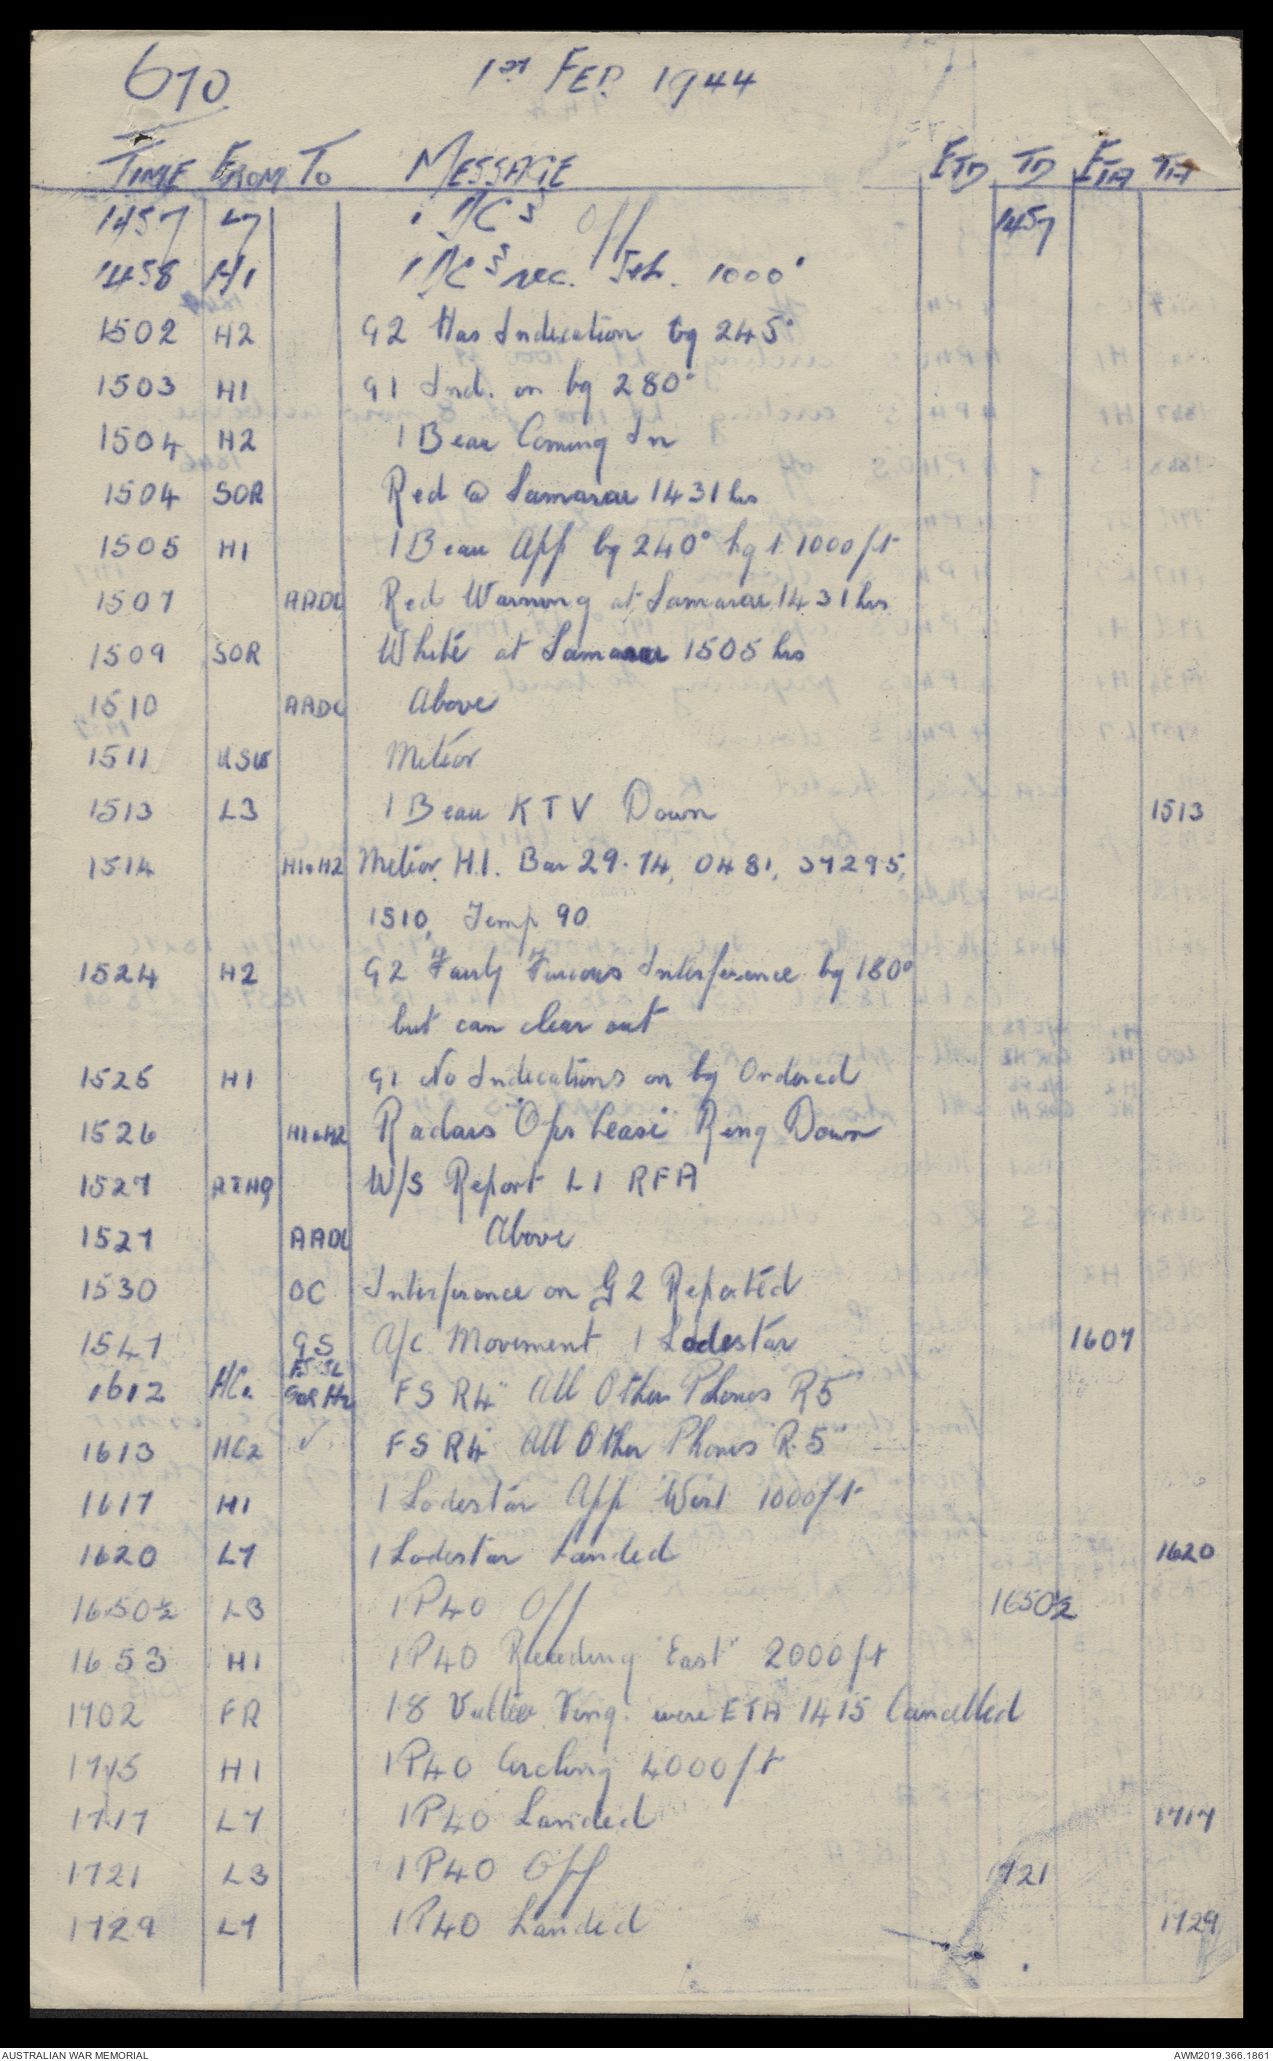 610.
1st FEB. 1944
TIME FROM TO MESSAGE ETD TD ETA TA
1457 L7 1 DC3 Off 1457
1458 H1 1 DC3 rec. 1000'
1502 H2 G2 Has Indication bg 245°
1503 H1 G1 Ind. on bg 280°
1504 H2 1 Beau Coming In
1504 SOR Red @ Samarai 1431 hrs
1505 H1 1 Beau App bg 240° hgt 1000 ft
1507 AADC Red Warning at Samarai 1431 hrs
1509 SOR White at Samarai 1505 hrs
1510 AADC Above
1511 Meteor
1513 L3 1 Beau KTV Down 1513
1514 H1&H2 Meteor H.1. Bar 29.74, 0481, 37295,
1510, Temp 90
1524 H2 G2 "Fairly Furious" Interference bg 180°
but can clear out
1525 H1 G1 No Indications on bg Ordered
1526 H1&H2 Radars Ops Close Ring Down
1527 W/S Report L1 RFA
1527 AADC Above
1530 OC Interference on G2 Reported
1547 GS A/c Movement 1 Lodestar 1607
FS SL
1612 HC1 SOR H2 FS R4" All Other Phones R5"
1613 HC2 ✓ FS R4" All Other Phones R.5"
1617 H1 1 Lodestar App West 1000 ft
1620 L7 1 Lodestar Landed 1620
1650½ L3 1 P40 Off 1650½
1653 H1 1 P40 Receding "East" 2000 ft
1702 FR 18 Vultee Veng. were ETA 1415 Cancelled
1715 H1 1 P40 Circling 4000 ft
1717 L7 1 P40 Landed 1717
1721 L3 1 P40 Off 1721
1729 L7 1 P40 Landed 1729
AUSTRALIAN WAR MEMORIAL AWM2019.366.1861